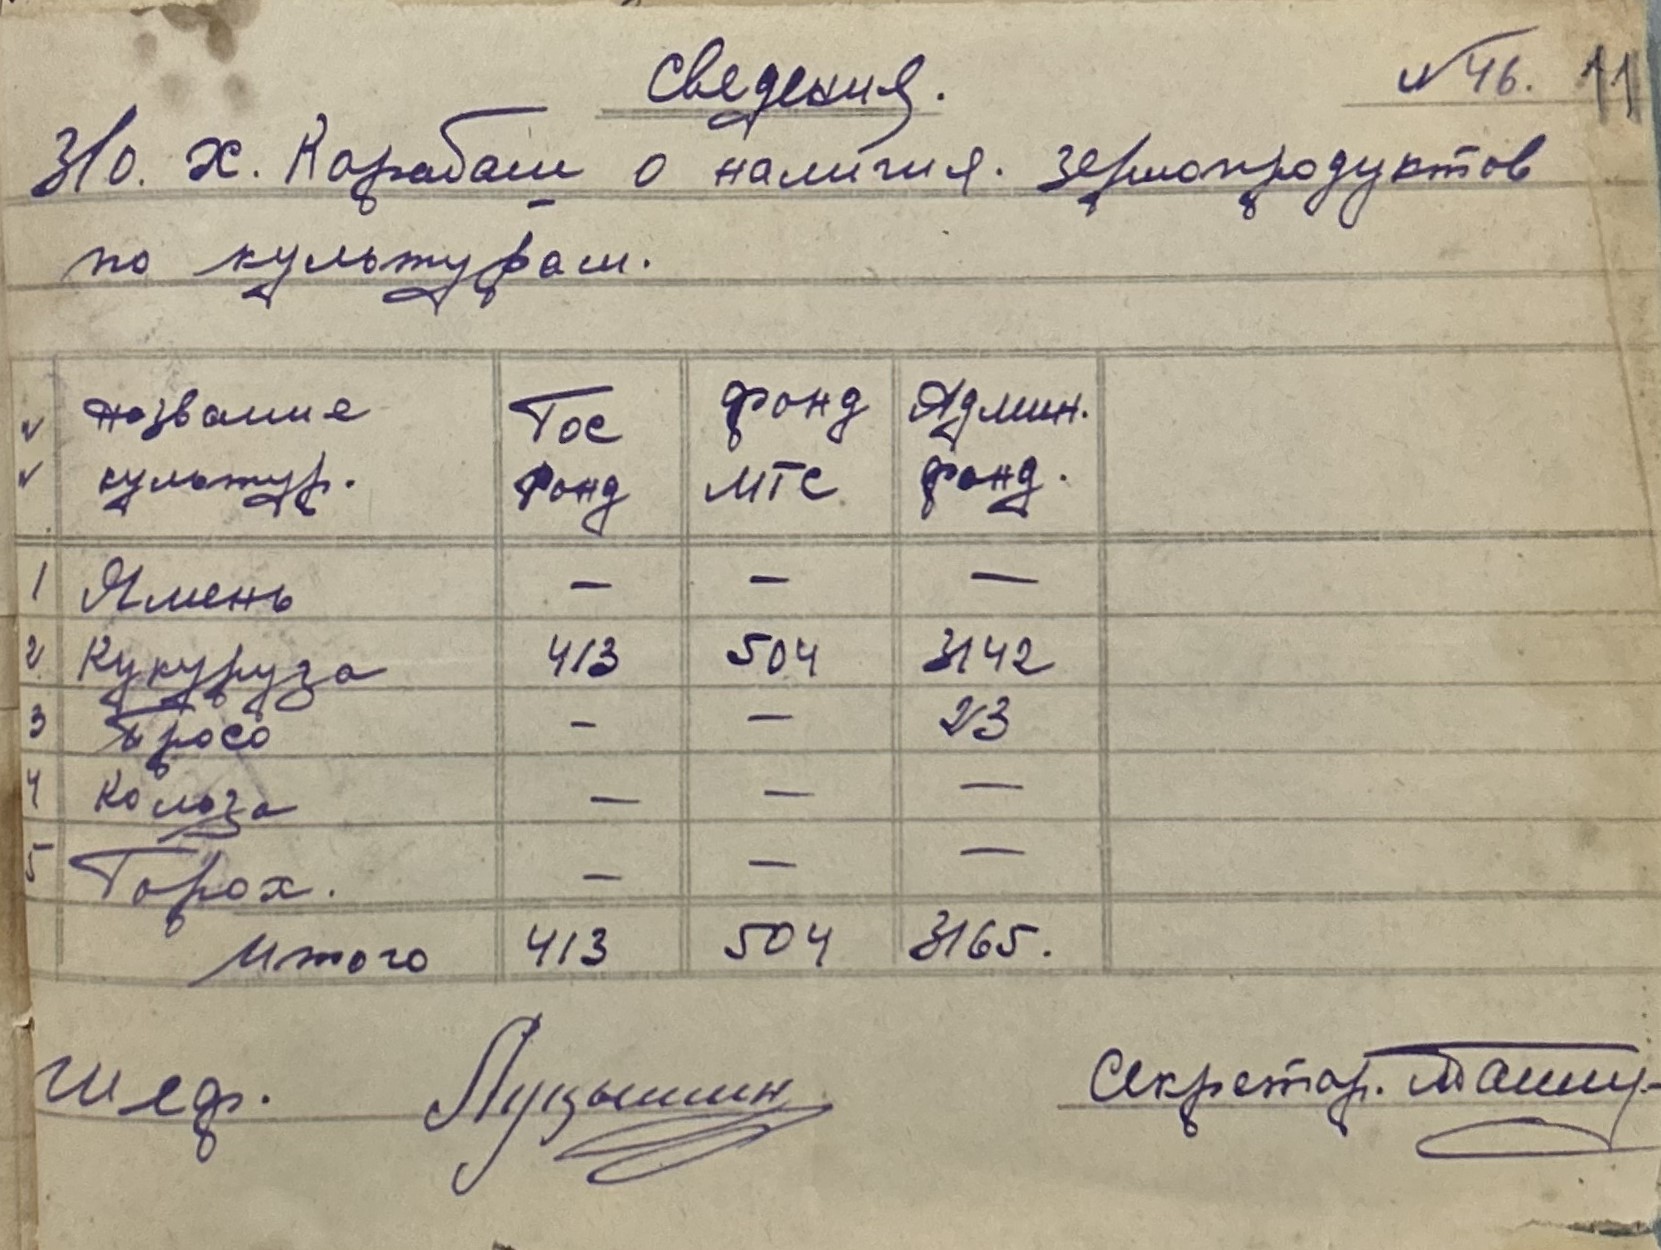 Сведения.
№ 46. 11
З/о. х. Карабаш о наличия. зернопродуктов
по культурам.
№ название культур. Гос Фонд фонд МТС Админ. фонд.
1 Ячмень — — —
2 Кукуруза 413 504 3142
3 Просо — — 23
4 Кольза — — —
5 Горох. — — —
Итого 413 504 3165.
Шеф. Секретар.